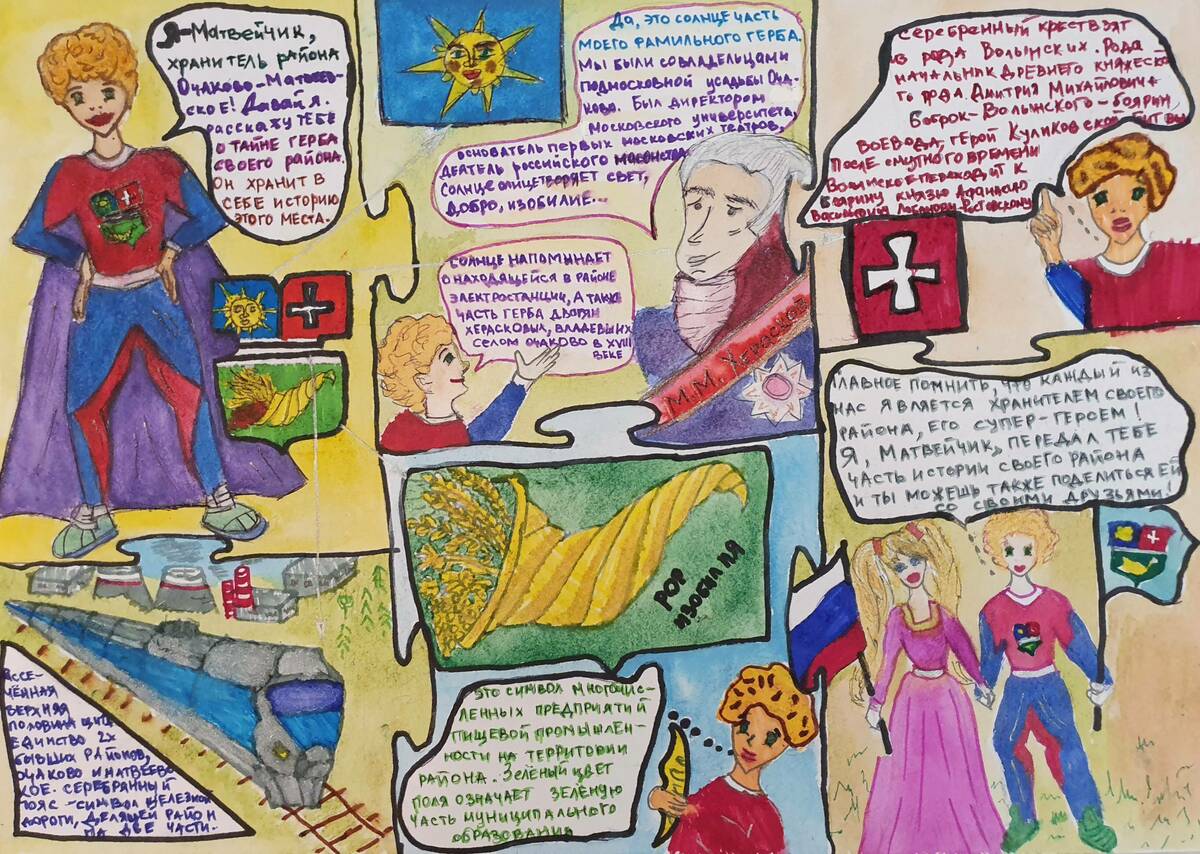 Я-Матвейчик,
хранитель района
Очаково-Матвеев-
ское! Давай я
расскажу тебе
о тайне герба
своего района.
Он хранит в
себе историю
этого места.
Да, это солнце часть
моего фамильного герба.
Мы были совладельцами
подмосковной усадьбы Оча-
ково. Был директором
Московского университета,
основатель первых московских театров,
деятель российского масонства
Солнце олицетворяет свет,
добро, изобилие...
Солнце напоминает
о находящейся в районе
электростанции, а также
часть герба дворян
Херасковых, владевших
селом Очаково в XVIII
веке
М.М. Херасков
Серебренный крест взят
из рода Волынских. Рода
начальник древнего княжеско
го рода Дмитрия Михайловича
Боброк-Волынского-боярин,
воевода, герой Куликовской битвы
После смутного времени
Волынское переходит к
боярину князю Афанасию
Васильевичу Лобанову-Ростовскому
Главное помнить, что каждый из
нас является хранителем своего
района, его супер-героем!
Я, Матвейчик, передал тебе
часть истории своего района
и ты можешь также поделиться ей
со своими друзьями!
Рог
изобилия
Это символ многочис-
ленных предприятий
пищевой промышлен-
ности на территории
района. Зелёный цвет
поля означает зелёную
часть муниципального
образования
Рассе-
чённая
верхняя
половина щита
единство 2х
бывших районов,
Очаково и Матвеевс
кое. Серебранный
пояс - символ железной
дороги, делящей район
на две части.